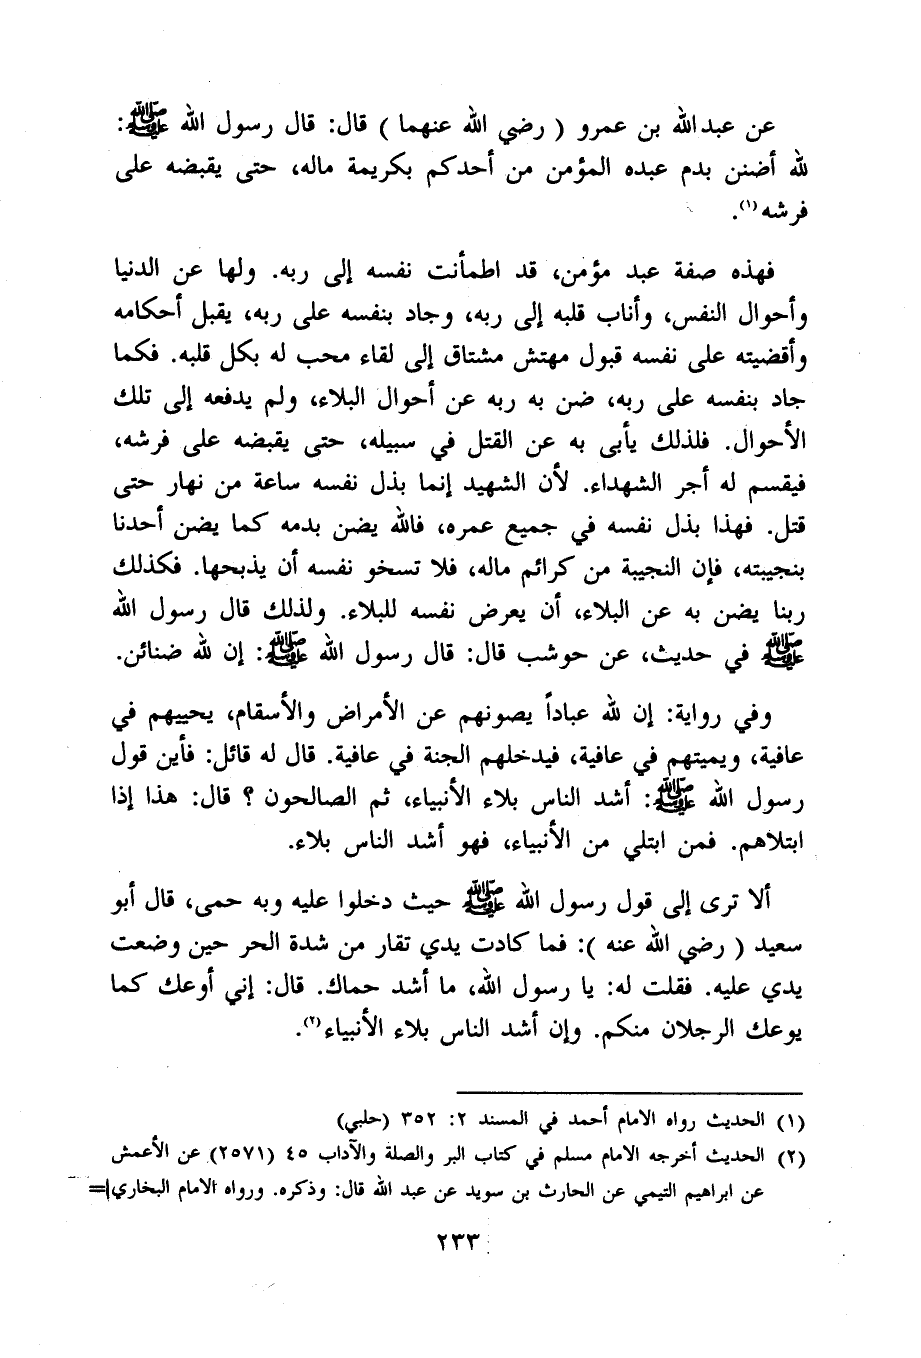 عن عبدالله بن عمرو ( رضي الله عنهما ) قال: قال رسول الله ﷺ:
لله أضنن بدم عبده المؤمن من أحدكم بكريمة ماله، حتى يقبضه على
فرشه(١).
فهذه صفة عبد مؤمن، قد اطمأنت نفسه إلى ربه. ولها عن الدنيا
وأحوال النفس، وأناب قلبه إلى ربه، وجاد بنفسه على ربه، يقبل أحكامه
وأقضيته على نفسه قبول مهتش مشتاق إلى لقاء محب له بكل قلبه. فكما
جاد بنفسه على ربه، ضن به ربه عن أحوال البلاء، ولم يدفعه إلى تلك
الأحوال. فلذلك يأبى به عن القتل في سبيله، حتى يقبضه على فرشه،
فيقسم له أجر الشهداء. لأن الشهيد إنما بذل نفسه ساعة من نهار حتى
قتل. فهذا بذل نفسه في جميع عمره، فالله يضن بدمه كما يضن أحدنا
بنجيبته، فإن النجيبة من كرائم ماله، فلا تسخو نفسه أن يذبحها. فكذلك
ربنا يضن به عن البلاء، أن يعرض نفسه للبلاء. ولذلك قال رسول الله
ﷺ في حديث، عن حوشب قال: قال رسول الله ﷺ: إن لله ضنائن.
وفي رواية: إن لله عباداً يصونهم عن الأمراض والأسقام، يحييهم في
عافية، ويميتهم في عافية، فيدخلهم الجنة في عافية. قال له قائل: فأين قول
رسول الله ﷺ: أشد الناس بلاء الأنبياء، ثم الصالحون ؟ قال: هذا إذا
ابتلاهم. فمن ابتلي من الأنبياء، فهو أشد الناس بلاء.
ألا ترى إلى قول رسول الله ﷺ حيث دخلوا عليه وبه حمى، قال أبو
سعيد ( رضي الله عنه ): فما كادت يدي تقار من شدة الحر حين وضعت
يدي عليه. فقلت له: يا رسول الله، ما أشد حماك. قال: إني أوعك كما
يوعك الرجلان منكم. وإن أشد الناس بلاء الأنبياء(٢).
(١) الحديث رواه الامام أحمد في المسند ٢: ٣٥٢ (حلبي)
(٢) الحديث أخرجه الامام مسلم في كتاب البر والصلة والآداب ٤٥ (٢٥٧١) عن الأعمش
عن ابراهيم التيمي عن الحارث بن سويد عن عبد الله قال: وذكره. ورواه الامام البخاري=
٢٣٣